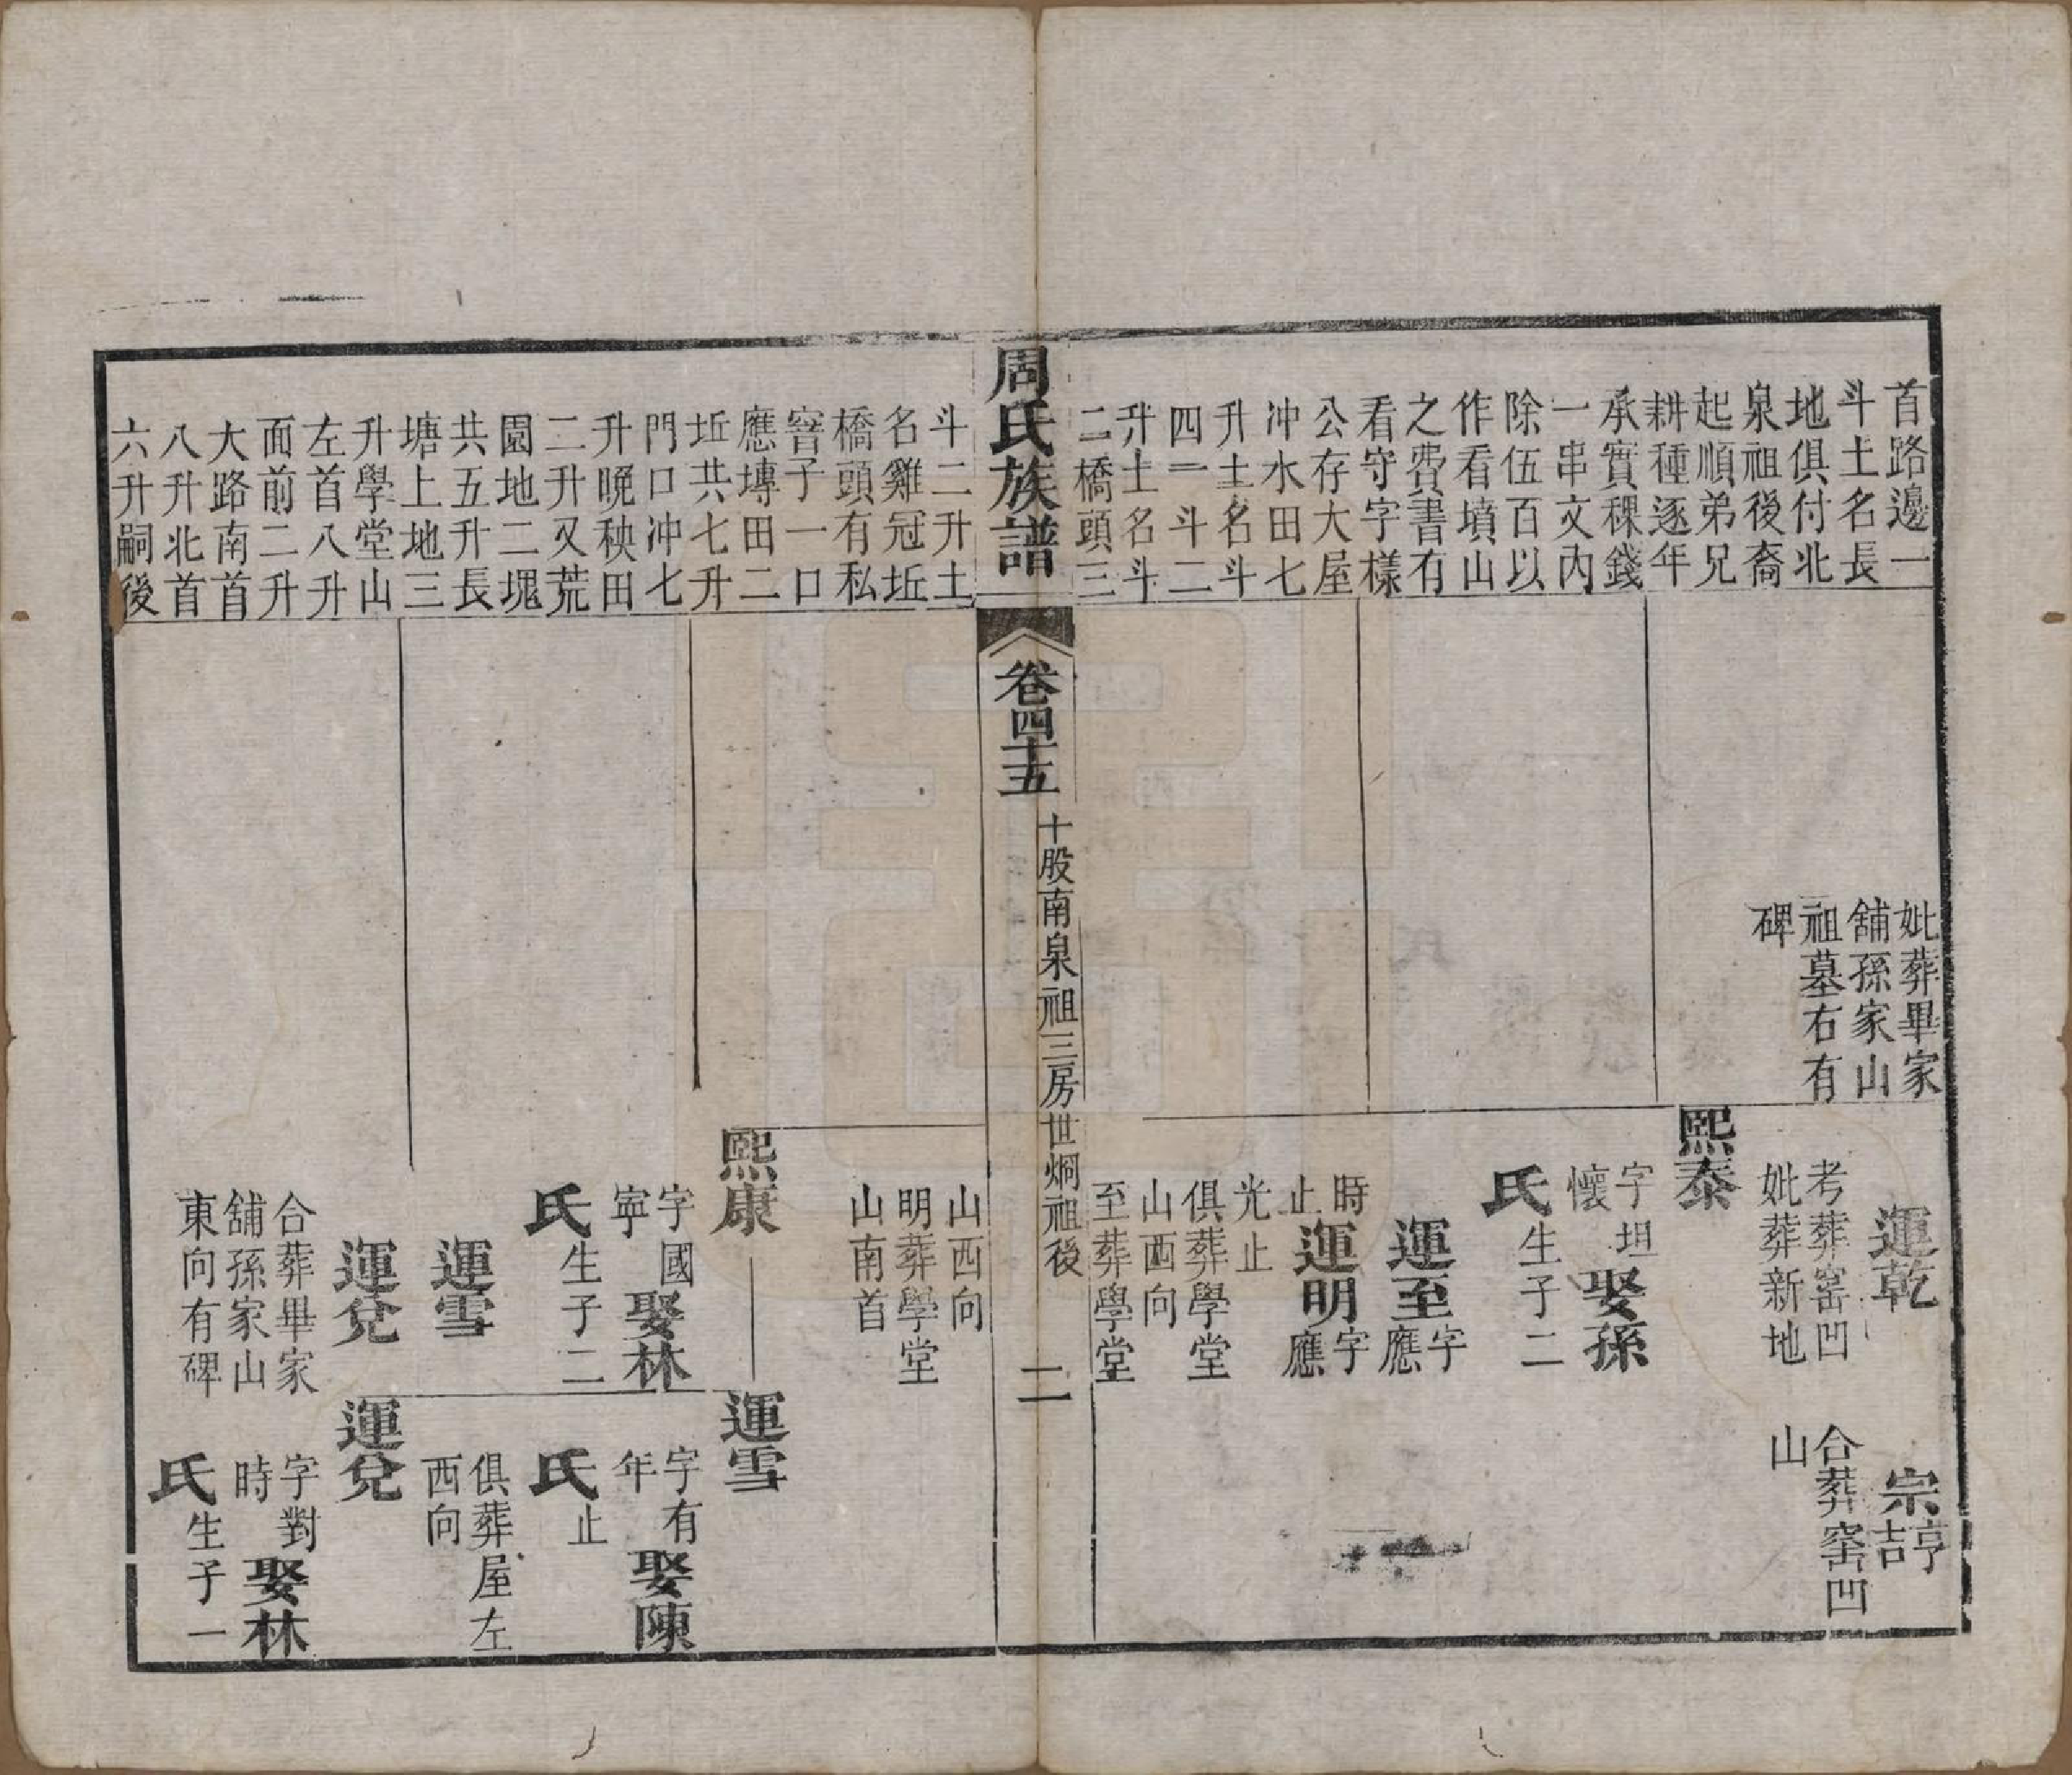 首路邊一
斗土名長
地俱付北
泉祖後裔
起順弟兄
耕種逐年
承實稞錢
一串文內
除伍百以
作看墳山
之費書有
看守字樣
公存大屋
冲水田七
升土名斗
四一斗二
升土名斗
二橋頭三
妣葬畢家
舖孫家山
祖墓右有
碑
運乾
考葬窑凹
妣葬新地
宗亨吉
合葬窑凹
山
熙泰
字坦懷娶孫
氏生子二
運至字應
時止運明字應
光止
俱葬學堂
山西向
至葬學堂
周氏族譜
卷四十五
十股南泉祖三房世烱祖後
二
斗二升土
名雞冠坵
橋頭有私
窖子一口
應塼田二
坵共七升
門口冲七
升晚秧田
二升又荒
園地二塊
共五升長
塘上地三
升學堂山
左首八升
面前二升
大路南首
八升北首
六升嗣後
山西向
明葬學堂
山南首
熙康
字國寧娶林
氏生子二
運雪
運兌
合葬畢家
舖孫家山
東向有碑
運雪
字有年娶陳
氏止
俱葬屋左
西向
運兌
字對時娶林
氏生子一